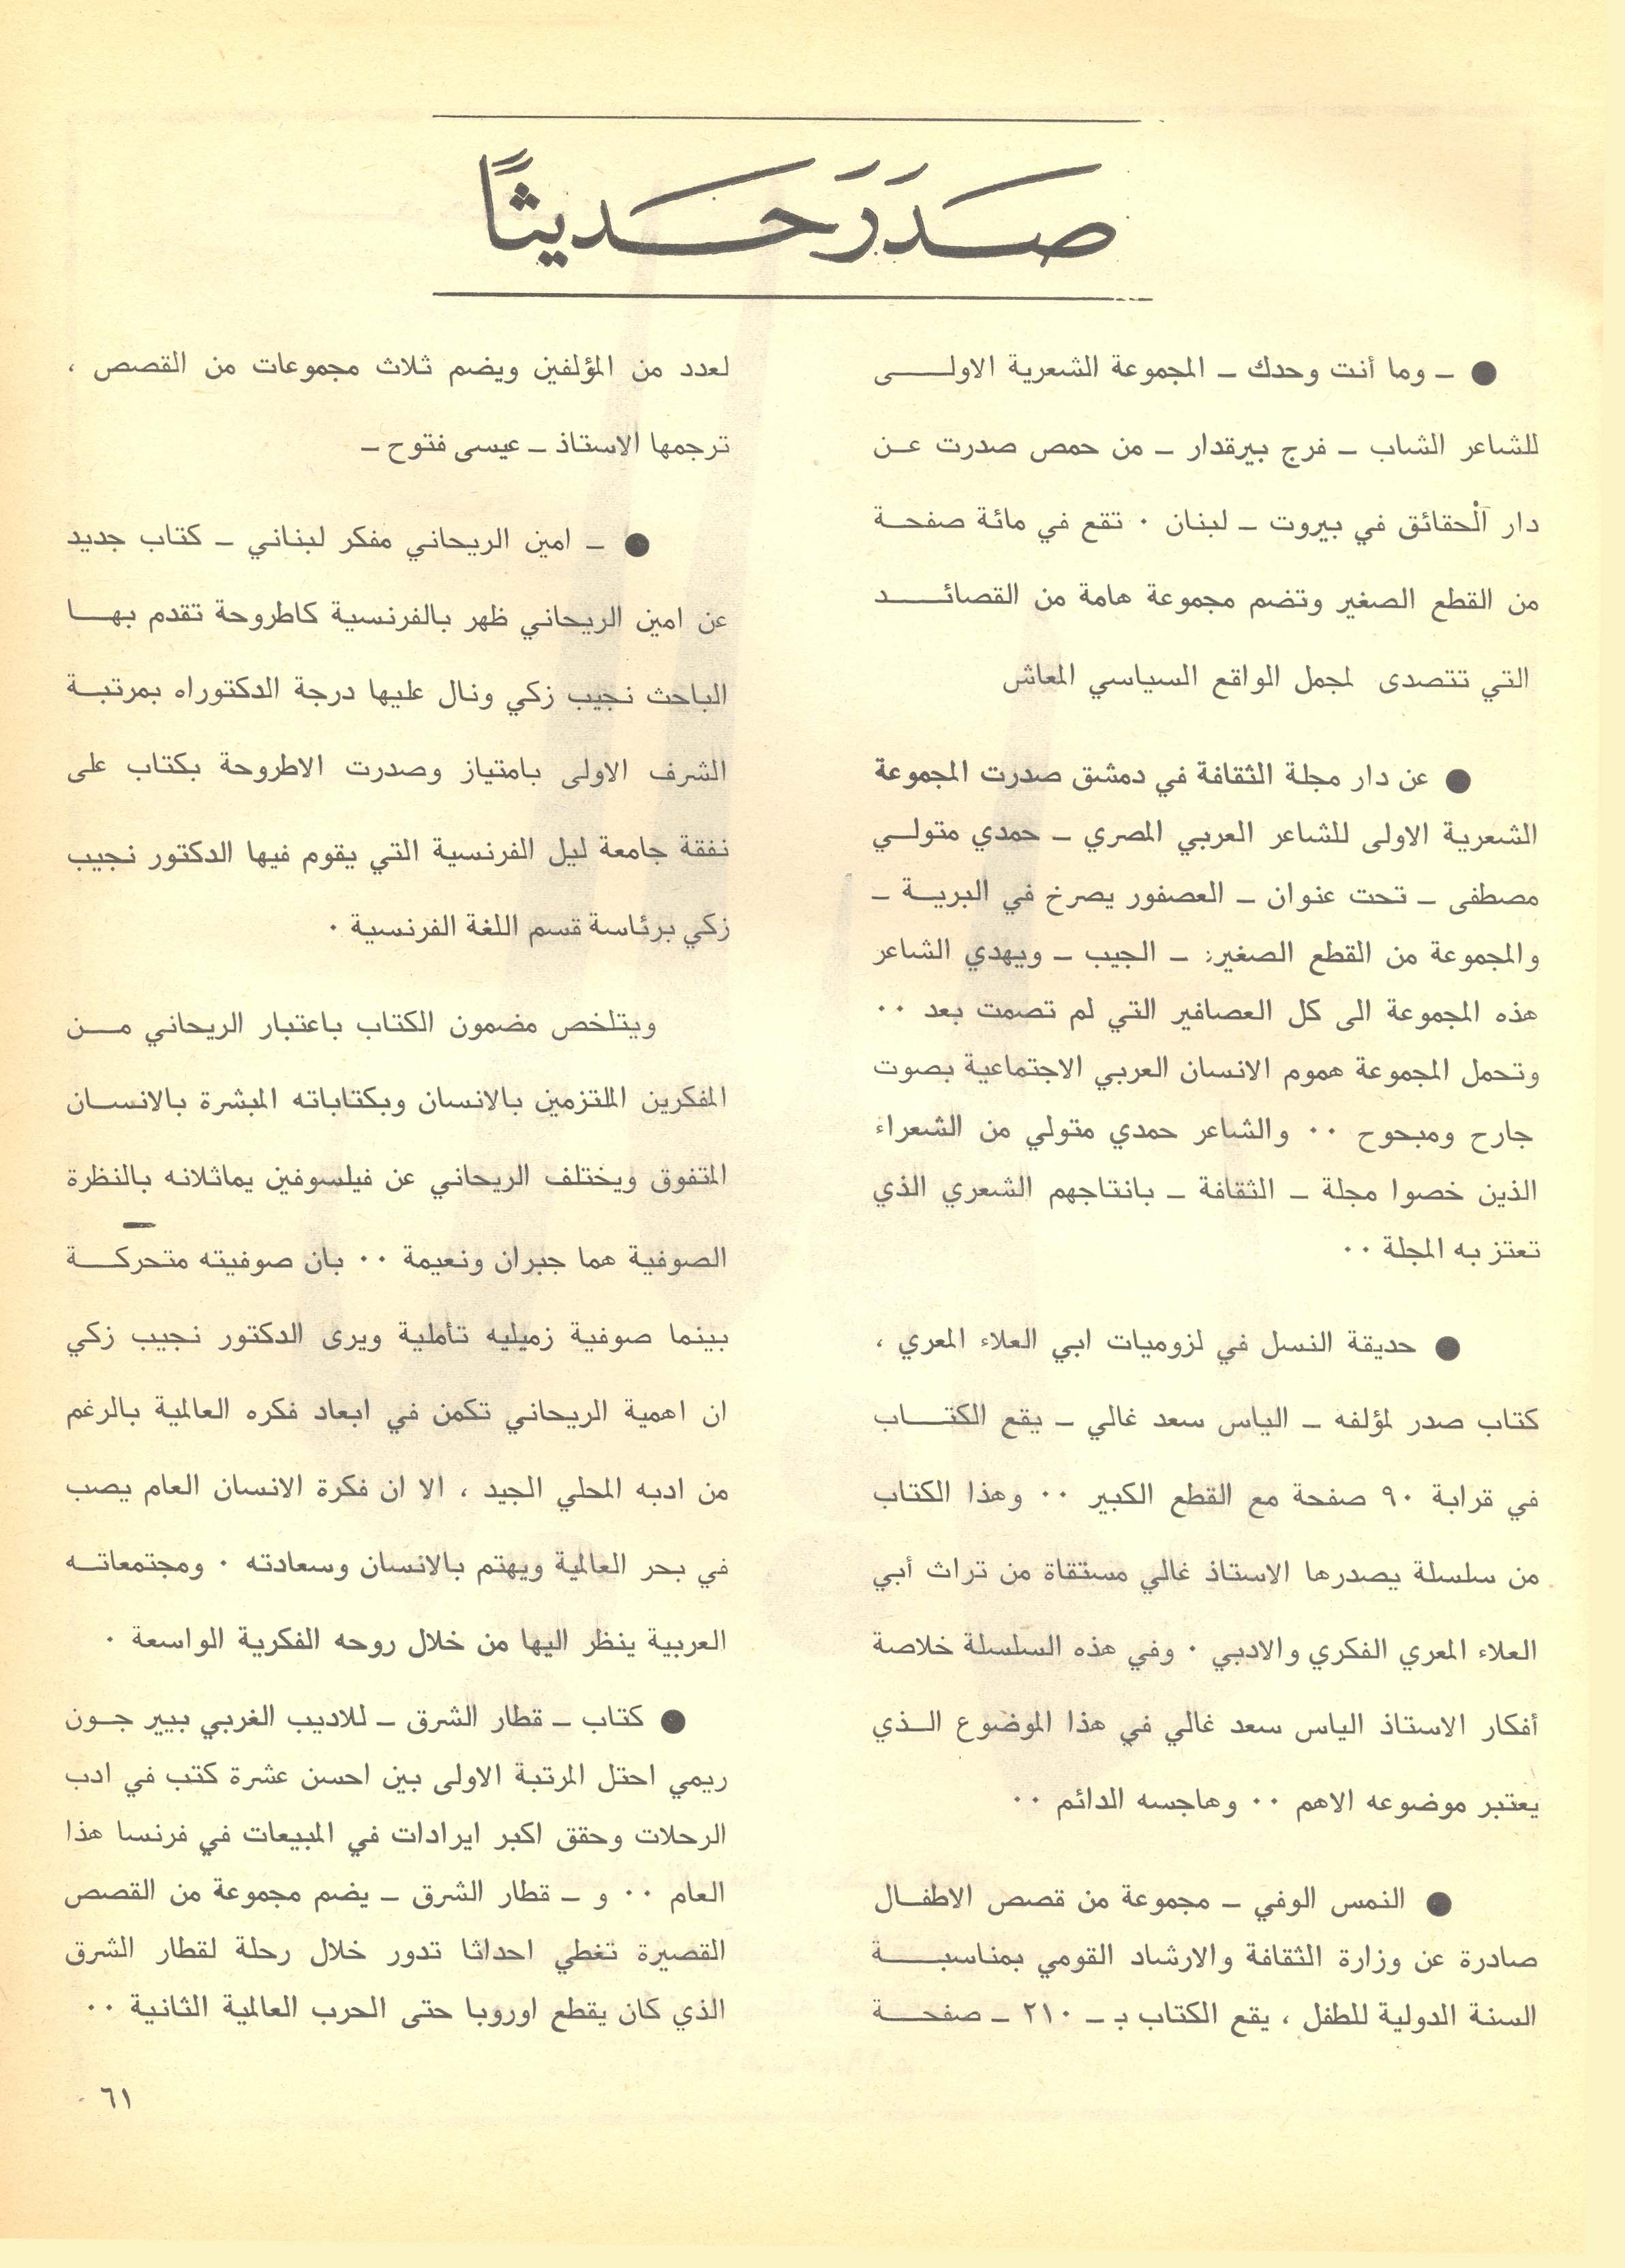 صَدَرَ حَديثًا
● ـ وما أنت وحدك ـ المجموعة الشعرية الاولى
للشاعر الشاب ـ فرج بيرقدار ـ من حمص صدرت عن
دار الحقائق في بيروت ـ لبنان ٠ تقع في مائة صفحة
من القطع الصغير وتضم مجموعة هامة من القصائد
التي تتصدى لمجمل الواقع السياسي المعاش
● عن دار مجلة الثقافة في دمشق صدرت المجموعة
الشعرية الاولى للشاعر العربي المصري ـ حمدي متولي
مصطفى ـ تحت عنوان ـ العصفور يصرخ في البرية ـ
والمجموعة من القطع الصغير: ـ الجيب ـ ويهدي الشاعر
هذه المجموعة الى كل العصافير التي لم تصمت بعد ٠٠
وتحمل المجموعة هموم الانسان العربي الاجتماعية بصوت
جارح ومبحوح ٠٠ والشاعر حمدي متولي من الشعراء
الذين خصوا مجلة ـ الثقافة ـ بانتاجهم الشعري الذي
تعتز به المجلة ٠٠
● حديقة النسل في لزوميات ابي العلاء المعري ،
كتاب صدر لمؤلفه ـ الياس سعد غالي ـ يقع الكتاب
في قرابة ٩٠ صفحة مع القطع الكبير ٠٠ وهذا الكتاب
من سلسلة يصدرها الاستاذ غالي مستقاة من تراث أبي
العلاء المعري الفكري والادبي ٠ وفي هذه السلسلة خلاصة
أفكار الاستاذ الياس سعد غالي في هذا الموضوع الذي
يعتبر موضوعه الاهم ٠٠ وهاجسه الدائم ٠٠
● النمس الوفي ـ مجموعة من قصص الاطفال
صادرة عن وزارة الثقافة والارشاد القومي بمناسبة
السنة الدولية للطفل ، يقع الكتاب بـ ـ ٢١٠ ـ صفحة
لعدد من المؤلفين ويضم ثلاث مجموعات من القصص ،
ترجمها الاستاذ ـ عيسى فتوح ـ
● ـ امين الريحاني مفكر لبناني ـ كتاب جديد
عن امين الريحاني ظهر بالفرنسية كاطروحة تقدم بها
الباحث نجيب زكي ونال عليها درجة الدكتوراه بمرتبة
الشرف الاولى بامتياز وصدرت الاطروحة بكتاب على
نفقة جامعة ليل الفرنسية التي يقوم فيها الدكتور نجيب
زكي برئاسة قسم اللغة الفرنسية ٠
ويتلخص مضمون الكتاب باعتبار الريحاني من
المفكرين الملتزمين بالانسان وبكتاباته المبشرة بالانسان
المتفوق ويختلف الريحاني عن فيلسوفين يماثلانه بالنظرة
الصوفية هما جبران ونعيمة ٠٠ بان صوفيته متحركة
بينما صوفية زميليه تأملية ويرى الدكتور نجيب زكي
ان اهمية الريحاني تكمن في ابعاد فكره العالمية بالرغم
من ادبه المحلي الجيد ، الا ان فكرة الانسان العام يصب
في بحر العالمية ويهتم بالانسان وسعادته ٠ ومجتمعاته
العربية ينظر اليها من خلال روحه الفكرية الواسعة ٠
● كتاب ـ قطار الشرق ـ للاديب الغربي بيير جون
ريمي احتل المرتبة الاولى بين احسن عشرة كتب في ادب
الرحلات وحقق اكبر ايرادات في المبيعات في فرنسا هذا
العام ٠٠ و ـ قطار الشرق ـ يضم مجموعة من القصص
القصيرة تغطي احداثا تدور خلال رحلة لقطار الشرق
الذي كان يقطع اوروبا حتى الحرب العالمية الثانية ٠٠
٦١